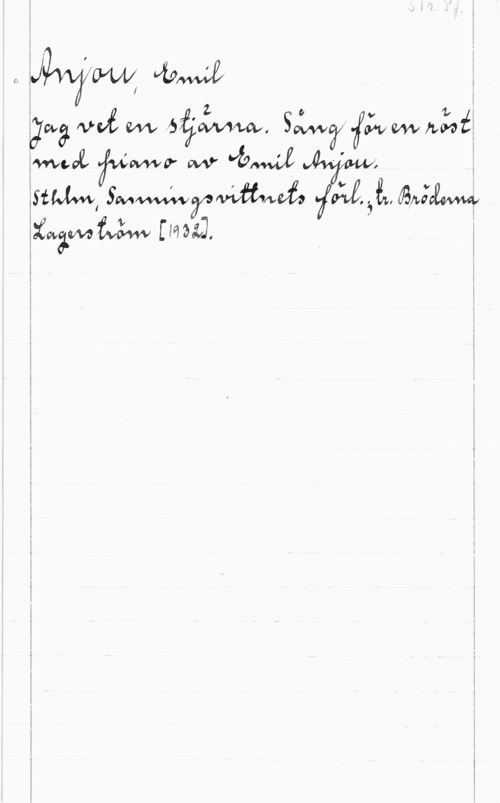 Anjou, Emil
Jag vet en stjärna. Sång för en röst
med piano av Emil Anjou.
Sthlm, Sanningsvittnets förl.; tr. Bröderna
Lagerström [1932].